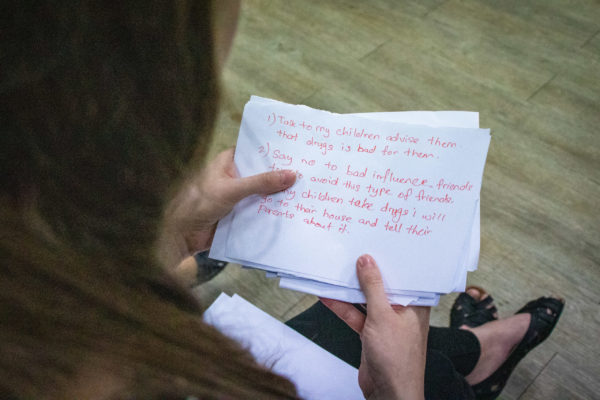 1) Talk to my children advise them.
that drugs is bad for them.
2) Say no to bad influence friends
avoid this type of friends.
my children take drugs i will
go to thair house and tell their
parents about it.